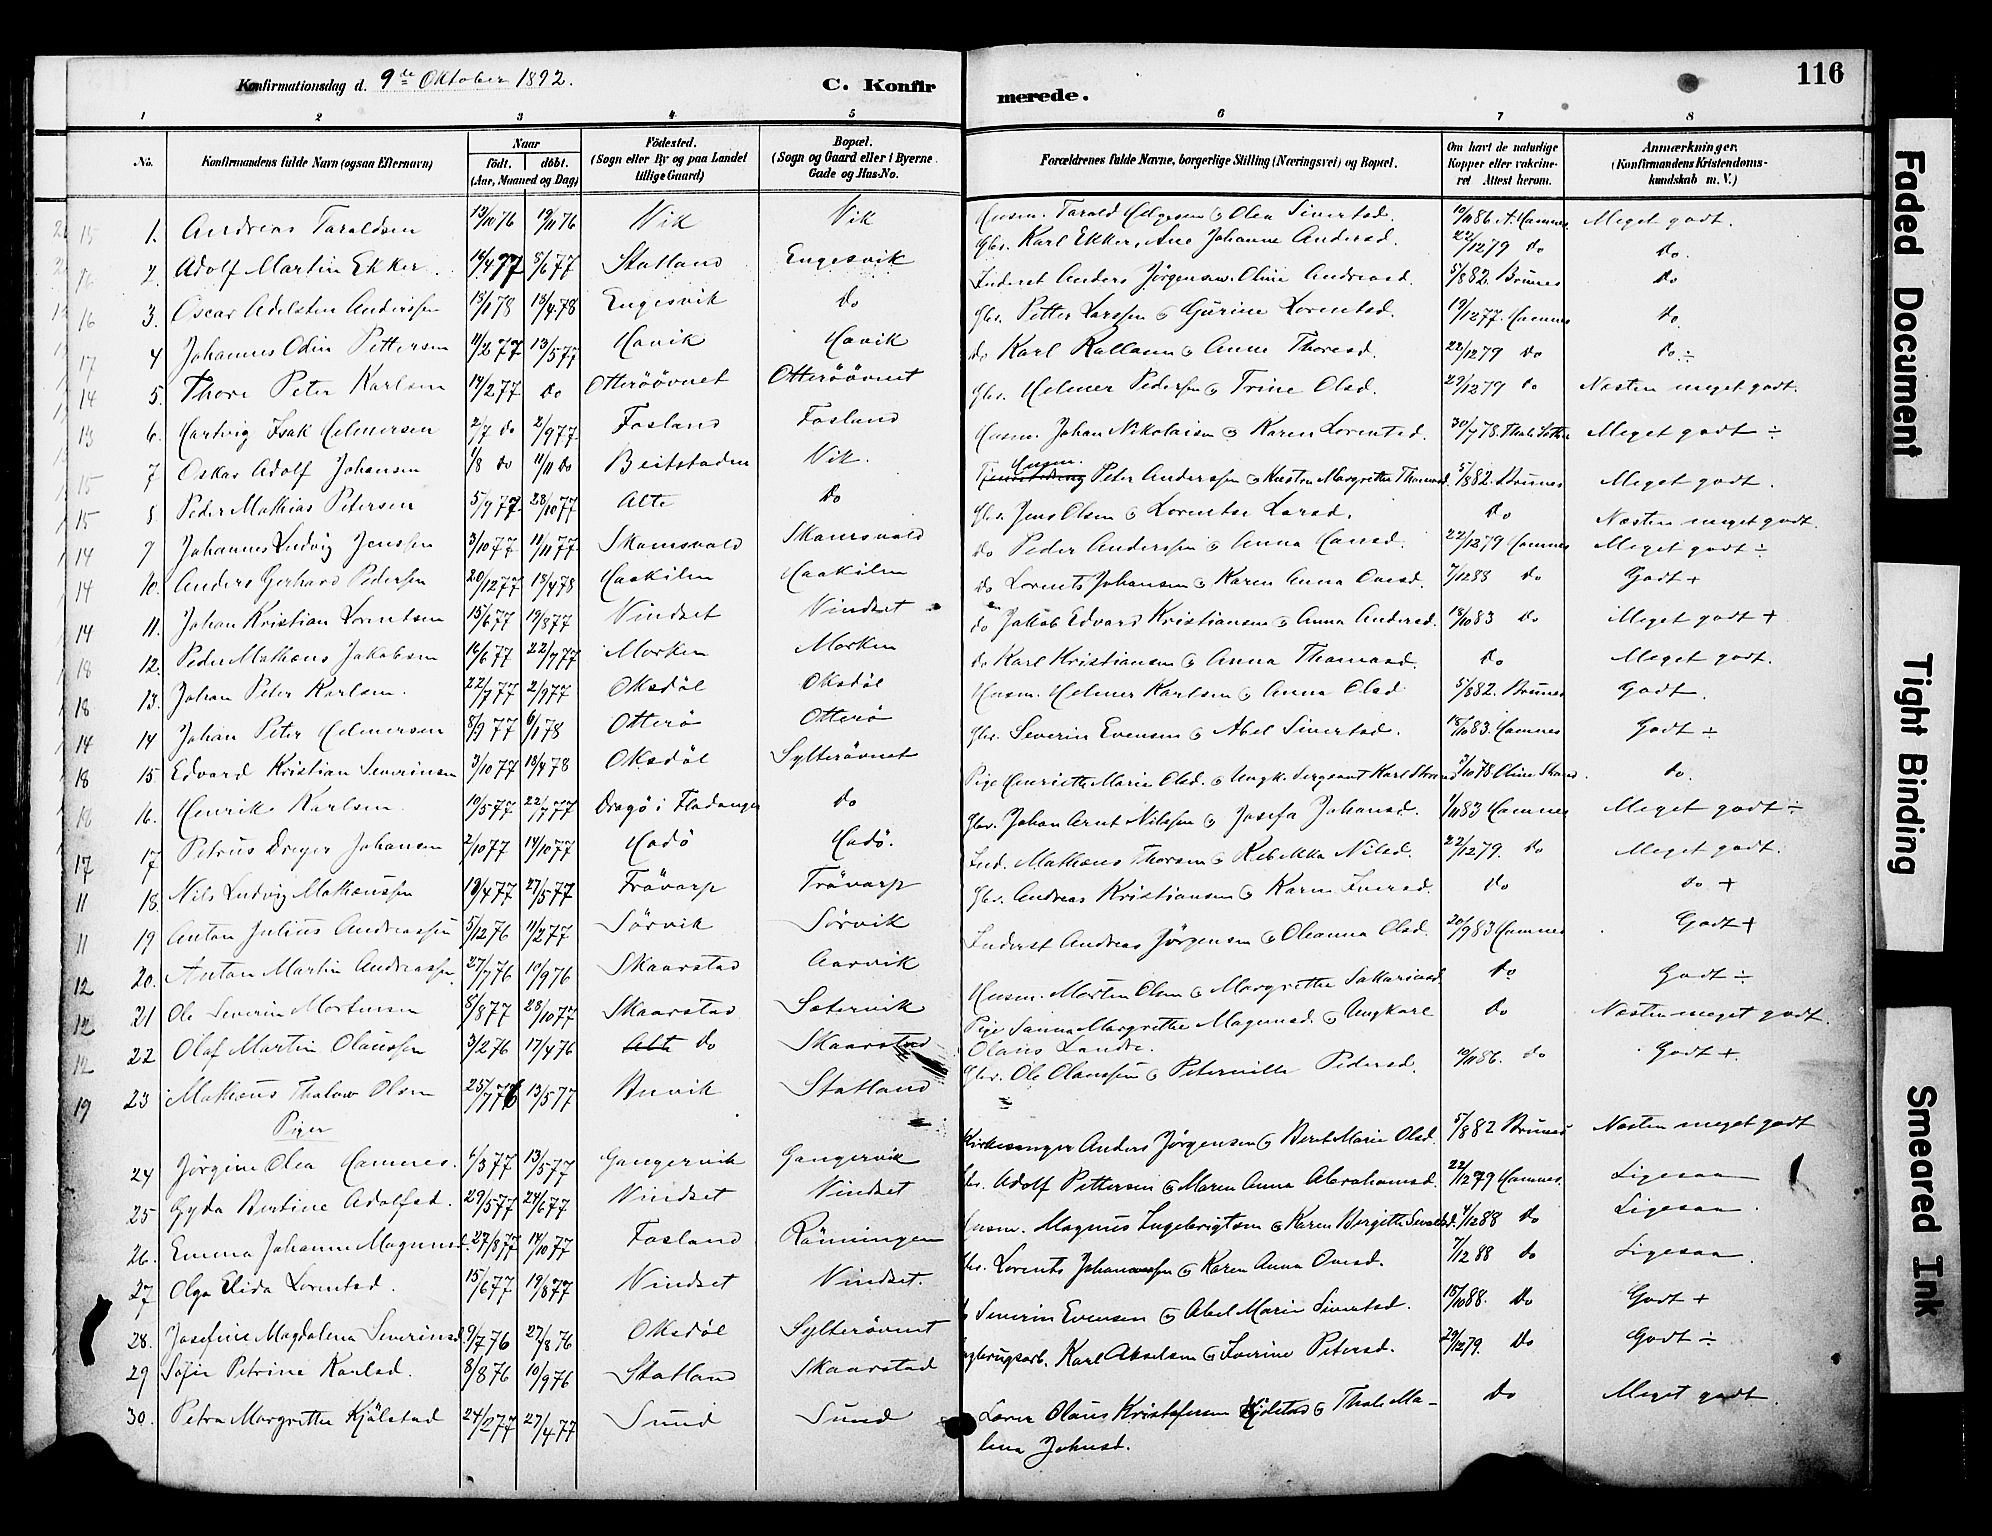 Konfirmationsdag d. 9de Oktober 1892.
C. Konfirmerede.
116
1 2 3 4 5 6 7 8
No. Konfirmandens fulde Navn (ogsaa Efternavn) Naar født, døbt. (Aar, Maaned og Dag) Fødested. (Sogn eller By og paa Landet tillige Gaard) Bopæl. (Sogn og Gaard eller i Byerne Gade og Hus-No. Forældrenes fulde Navne, borgerlige Stilling (Næringsvei) og Bopæl. Om havt de naturlige Kopper eller vakcineret. Attest herom. Anmærkninger. (Konfirmandens Kristendomskundskab m. V.)
15 1. Andreas Taraldsen 19/11 76 Vik Vik Husm. Tarald Helgesen & Olea Sivertsd. 19/10 86 A. Hamnes Meget godt.
16 2 Adolf Martin Ekker. 14/4 77 5/6 77 Statland Engesvik Gbr. Karl Ekker, Ane Johanna Andersd. 22/12 79 do do.
16 3. Oscar Adelsten Anderssen 13/1 78 18/4 78 Engesvik do Inderst Anders Jørgensen, Oline Andreasd. 5/8 82. Brunes do
17 4 Johannes Odin Pettersen 11/2 77 13/5 77 Havik Havik Gbr. Petter Larssen & Gurine Lorentsd. 19/12 77. Hamnes do
14 5. Thore Peter Karlsen 14/2 77 do Otterøövnet Otterøövnet do Karl Rallasen & Anne Thoresd. 22/12 79 do do ÷
13 6. Hartvig Isak Helmersen 2/7 do 2/9 77 Fosland Fosland Gbr. Helmer Pedersen & Trine Olsd. 29/12 79 do Næsten meget godt.
15 7 Oskar Adolf Johansen 1/8 do 11/11 do Beitstaden Vik. Husm. Johan Nikolaisen & Karen Lorentsd. 30/7 78. Meget godt ÷
15 8 Peder Mathias Petersen 5/9 77 28/10 77 Alte do Husm. Peter Anderssen & Kirsten Margrethe Thomasd. 5/8 82. Brunes Meget godt.
14 9 Johannes Ludvig Jenssen 3/10 77 11/11 77 Skamsvold Skamsvold Gbr. Jens Olsen & Lorentse Larsd. do Næsten meget godt.
14 10. Anders Gerhard Pedersen 20/12 77 18/4 78 Haakilen Haakilen do Peder Anderssen & Anna Hansd. 22/12 79 Hamnes Meget godt ÷
14 11. Johan Kristian Lorentsen 15/6 77 19/8 77 Vindset Vindset do Lorents Johansen & Karen Anna Ovesd. 7/12 88 do Godt +
18 12. Peder Mathæus Jakobsen 16/6 77 22/7 77 Morken Morken do Jakob Edvard Kristiansen & Anna Andersd. 18/10 83 do Meget godt +
18 13. Johan Peter Karlsen. 22/7 77 2/9 77 Oksdøl Oksdøl do Karl Kristiansen & Anna Thomasd. do Meget godt.
14 14 Johan Peter Helmersen 8/9 77 6/1 78 Otterø Otterø Husm. Helmer Karlsen & Anna Olsd 5/8 82. Brunes Godt.
18 15 Edvard Kristian Severinsen 3/10 77 18/4 78 Oksdøl Sylterøvnet Gbr. Severin Evensen & Abel Sivertsd. 18/10 83. Hamnes Godt ÷
18 16. Henrik Karlsen. 19/5 77 22/7 77 Dragø i Fladanger do Pige Henriette Marie Olsd. & Ungk. Sergeant Karl Strand 3/10 78 Oline Strand. do.
17 17. Petrus Dreyer Johansen 2/10 77 14/10 77 Hodø Hodø. Gbr. Johan Arnt Nilssen & Josefa Johansd. 1/11 83 Hamnes Meget godt ÷
11 18. Nils Ludvig Mathæussen 19/4 77 27/5 77 Trøvarp Trøvarp Ind. Mathæus Thorsen & Rebekka Nilsd. 22/12 79. do Meget godt.
11 19 Anton Julius Andreassen 5/12 76 11/2 77 Sørvik Sørvik Gbr. Andreas Kristiansen & Karen Iversd. do do +
12 20. Anton Martin Andreassen. 27/7 76 10/9 76 Skaarstad Aarvik Inderst Andreas Jørgensen & Oleanna Olsd. 20/9 83 Hamnes Godt +
12 21 Ole Severin Mortensen 8/8 77 28/10 77 Skaarstad Sætervik Husm. Morten Olsen & Margrethe Sakariasd. do Godt ÷
12 22 Olaf Martin Olaussen 3/2 76 17/4 76 Alte do Skaarstad Pige Sanna Margrethe Magnusd. & Ungkarl Olaus Landre. do Næsten meget godt.
19 23 Mathæus Thalow Olsen 25/7 76 13/5 77 Buvik Statland Gbr. Ole Olaussen & Peterville Pedersd. 19/11 86. do Godt +
Piger
24 Jørgine Olea Hamnes. 6/3 77 13/5 77 Gangervik Gangervik Kirkesanger Anders Jørgensen & Beret Marie Olsd. 5/8 82 Brunes Næsten meget godt
25 Gyda Bertine Adolfsd. 29/5 77 24/6 77 Vindset Vindset Adolf Pettersen & Maren Anna Abrahamsd. 22/12 79 Hamnes. Ligesaa
26. Emma Johanna Magnusd. 27/8 77 14/10 77 Fosland Rønningen Husm. Magnus Ingebrigtsen & Karen Bergitte Sivertsd. 4/12 88 do Ligesaa.
27 Olga Elida Lorentsd. 15/6 77 19/8 77 Vindset Vindset. Lorents Johanssen & Karen Anna Ovesd. 7/12 88 do Ligesaa
28. Josefine Magdalena Severinsd. 9/7 76 27/8 76 Oksdøl Sylterøvnet Severin Evensen & Abel Marie Sivertsd. 18/10 88. do Godt +
29 Sofie Petrine Karlsd. 8/8 76 10/9 76 Statland Skaarstad Karl Akselsen & Iverine Petersd. 29/12 79. do Godt ÷
30. Petra Margrethe Kjølstad 24/2 77 27/4 77 Sund Sund Lærer Olaus Kristofersen Kjølstad & Thale Malena Johnsd. do Meget godt
Faded Document
Tight Binding
Smeared Ink